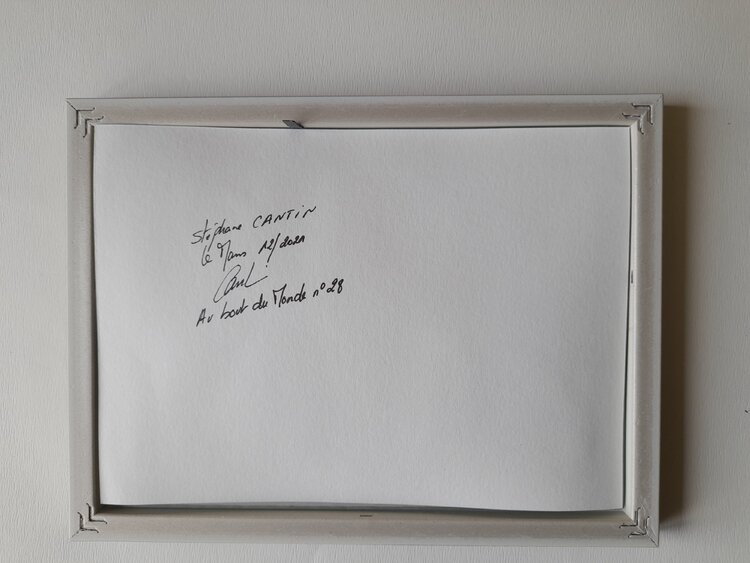 Stéphane CANTIN
Le Mans 12/2021
Au bout du Monde n°28